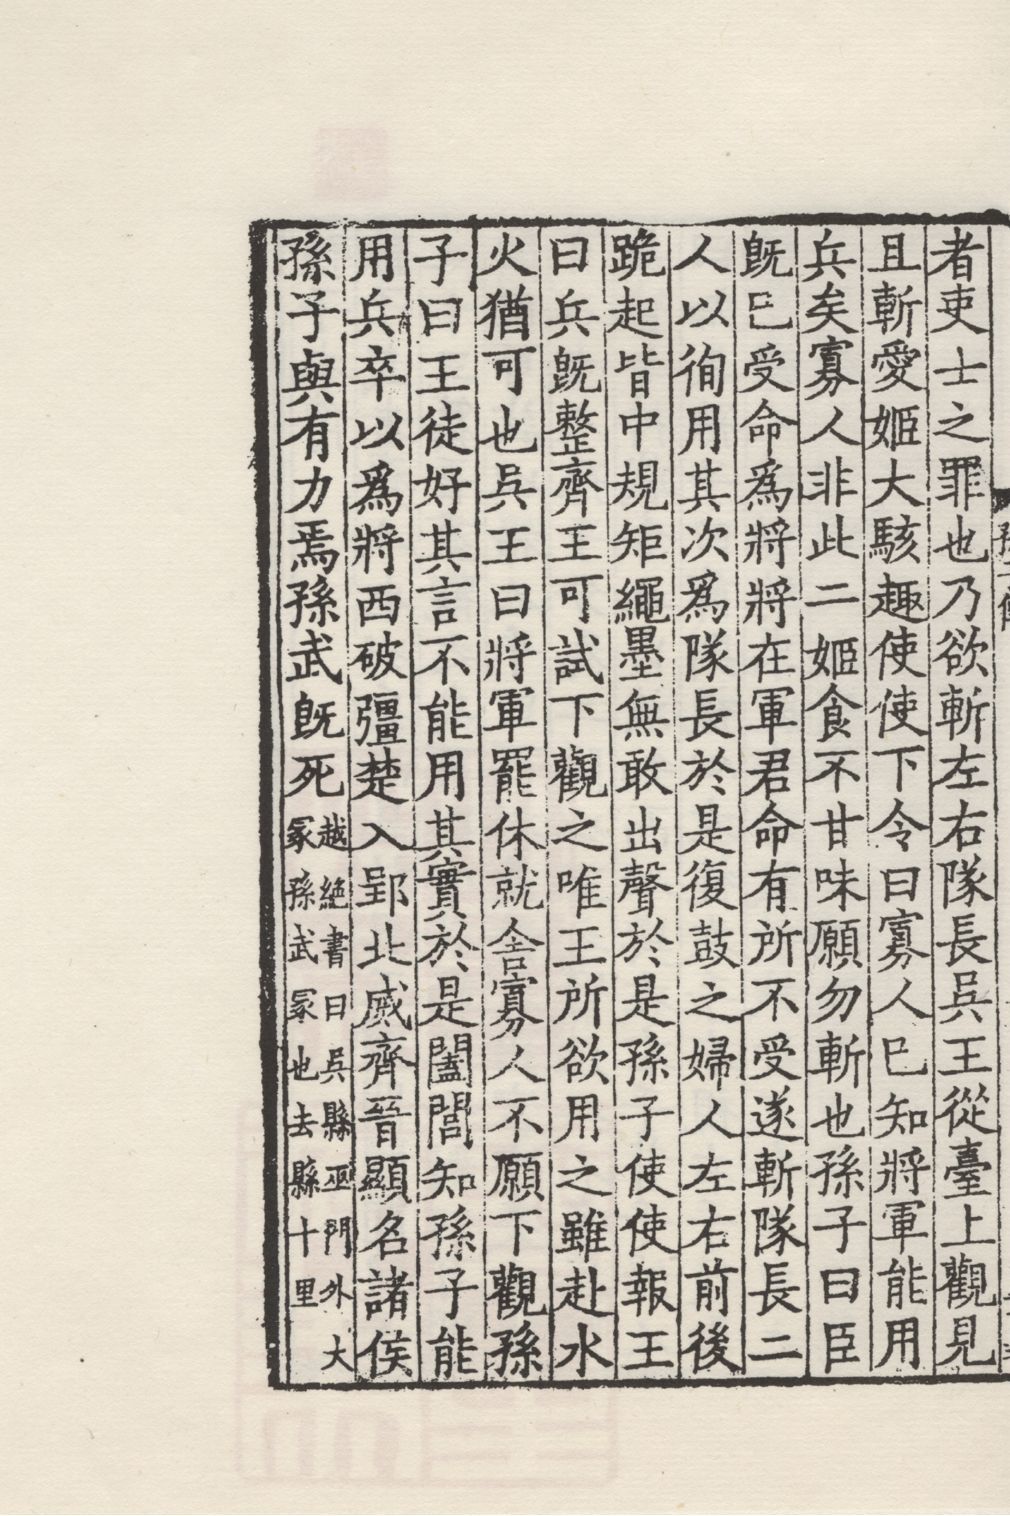 者吏士之罪也乃欲斬左右隊長吳王從臺上觀見
且斬愛姬大駭趣使使下令曰寡人已知將軍能用
兵矣寡人非此二姬食不甘味願勿斬也孫子曰臣
旣已受命爲將將在軍君命有所不受遂斬隊長二
人以徇用其次爲隊長於是復鼓之婦人左右前後
跪起皆中規矩繩墨無敢出聲於是孫子使使報王
曰兵旣整齊王可試下觀之唯王所欲用之雖赴水
火猶可也吳王曰將軍罷休就舍寡人不願下觀孫
子曰王徒好其言不能用其實於是闔閭知孫子能
用兵卒以爲將西破彊楚入郢北威齊晉顯名諸侯
孫子與有力焉孫武旣死
越絶書曰吳縣巫門外大
冢孫武冢也去縣十里